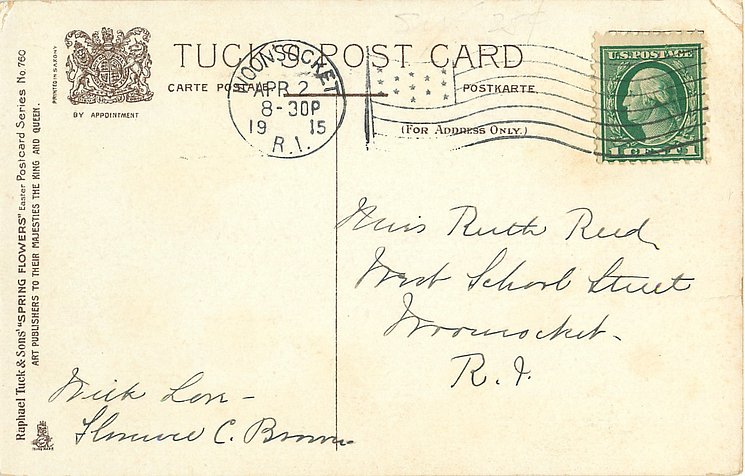 TUCK'S POST CARD
CARTE POSTALE
POSTKARTE.
(FOR ADDRESS ONLY.)
BY APPOINTMENT
PRINTED IN SAXONY
Raphael Tuck & Sons' "SPRING FLOWERS" Easter Postcard Series No. 760
ART PUBLISHERS TO THEIR MAJESTIES THE KING AND QUEEN.
WOONSOCKET
APR 2
8-30P
19 15
R.I.
U.S. POSTAGE
1 CENT 1
Miss Ruth Reed,
West School Street
Woonsocket-
R. I.
With Love-
Florence C. Brown